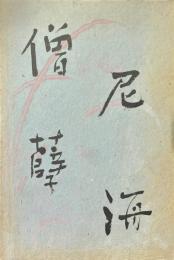 僧尼
孽海